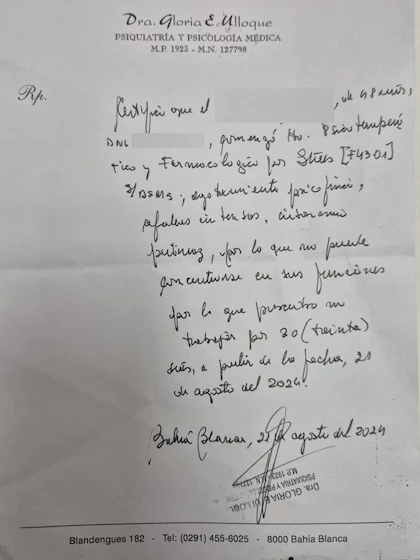 Dra. Gloria E. Ulloque
PSIQUIATRÍA Y PSICOLOGÍA MÉDICA
M.P. 1923 - M.N. 127798
Rp.
Certifico que el , de 48 años,
DNI , comenzó tto. Psicoterapéu
tico y Farmacológico por Stres [F43.01]
s/DSM4, agotamiento psicofísico,
cefaleas intensas, insomnio
pertinaz, por lo que no puede
concentrarse en sus funciones
por lo que prescribo no
trabajar por 30 (treinta)
días, a partir de la fecha, 21
de agosto del 2024.
Bahía Blanca, 21 de agosto del 2024
Dra. GLORIA E. ULLOQUE
PSIQUIATRIA Y
M.P. 1923
Blandengues 182 - Tel: (0291) 455-6025 - 8000 Bahía Blanca